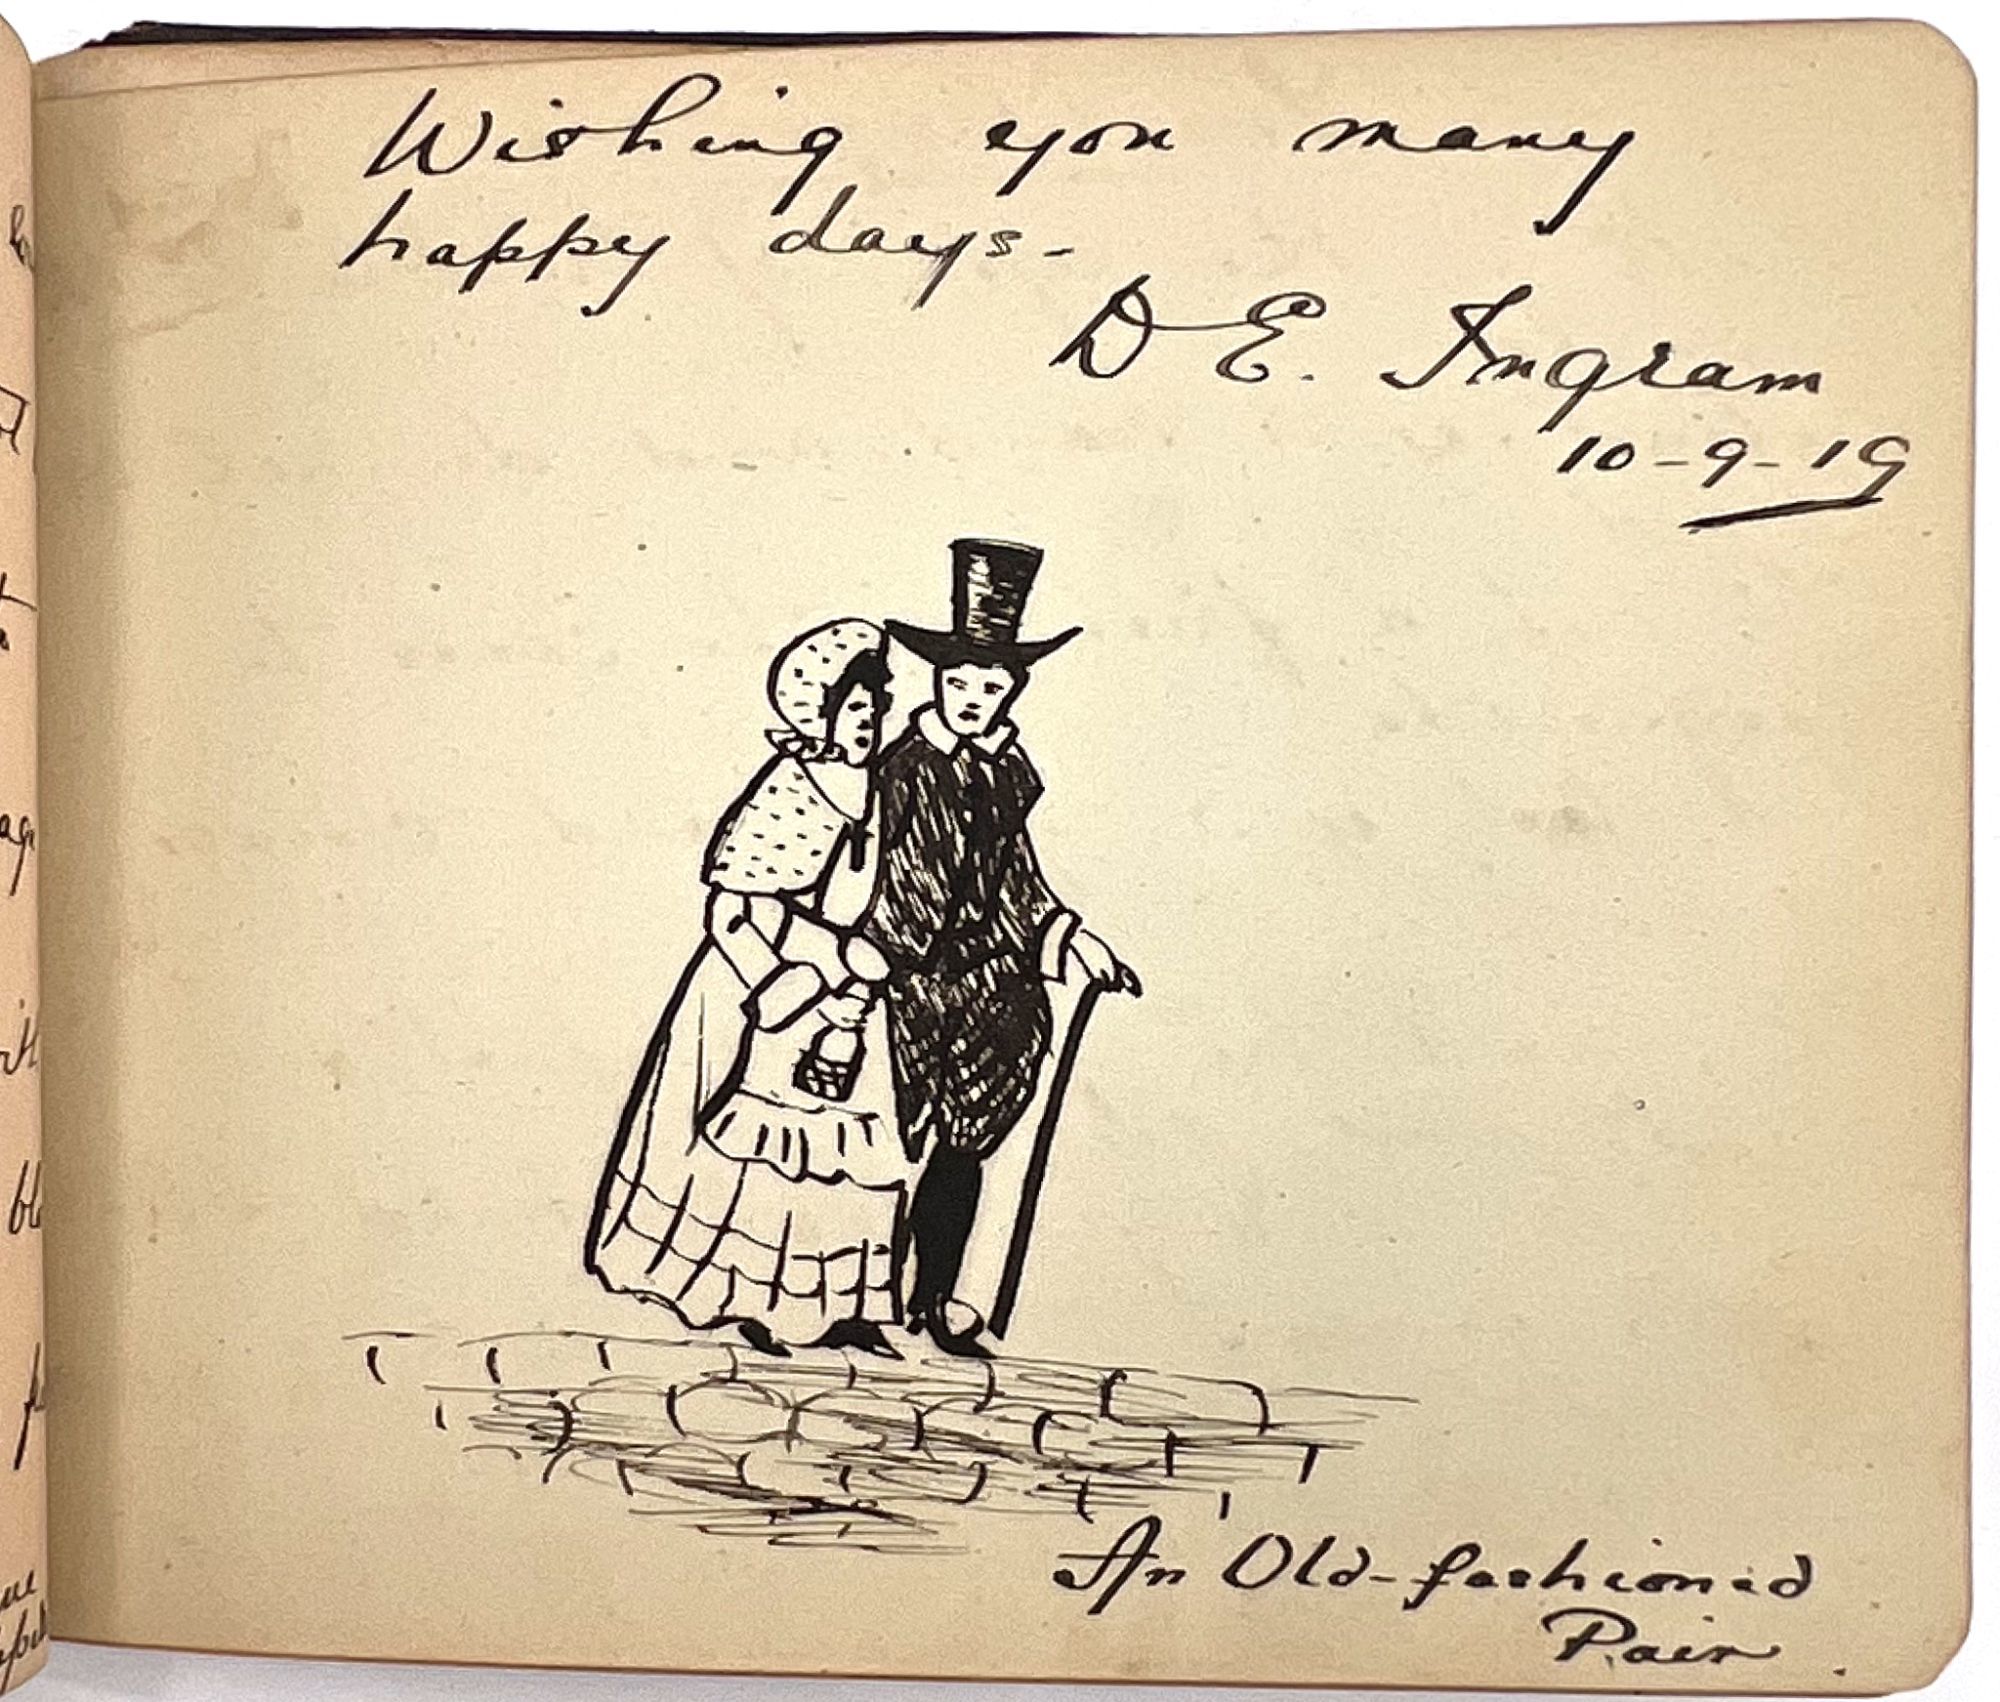 Wishing you many
happy days-
D E. Ingram
10-9-19
An Old-fashioned
Pair.